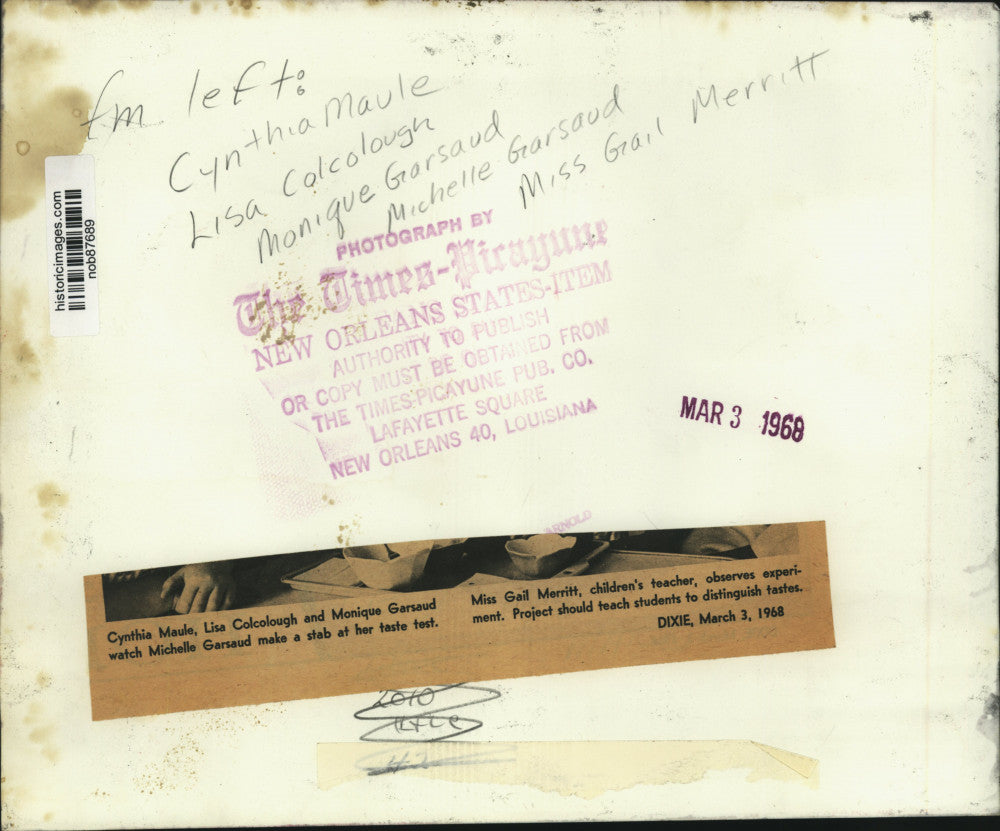 fm left:
Cynthia Maule
Lisa Colcolough
Monique Garsaud
Michelle Garsaud
Miss Gail Merritt
historicimages.com
nob87689
PHOTOGRAPH BY
The Times-Picayune
NEW ORLEANS STATES-ITEM
AUTHORITY TO PUBLISH
OR COPY MUST BE OBTAINED FROM
THE TIMES-PICAYUNE PUB. CO.
LAFAYETTE SQUARE
NEW ORLEANS 40, LOUISIANA
MAR 3 1968
ARNOLD
Cynthia Maule, Lisa Colcolough and Monique Garsaud
watch Michelle Garsaud make a stab at her taste test.
Miss Gail Merritt, children's teacher, observes experi-
ment. Project should teach students to distinguish tastes.
DIXIE, March 3, 1968